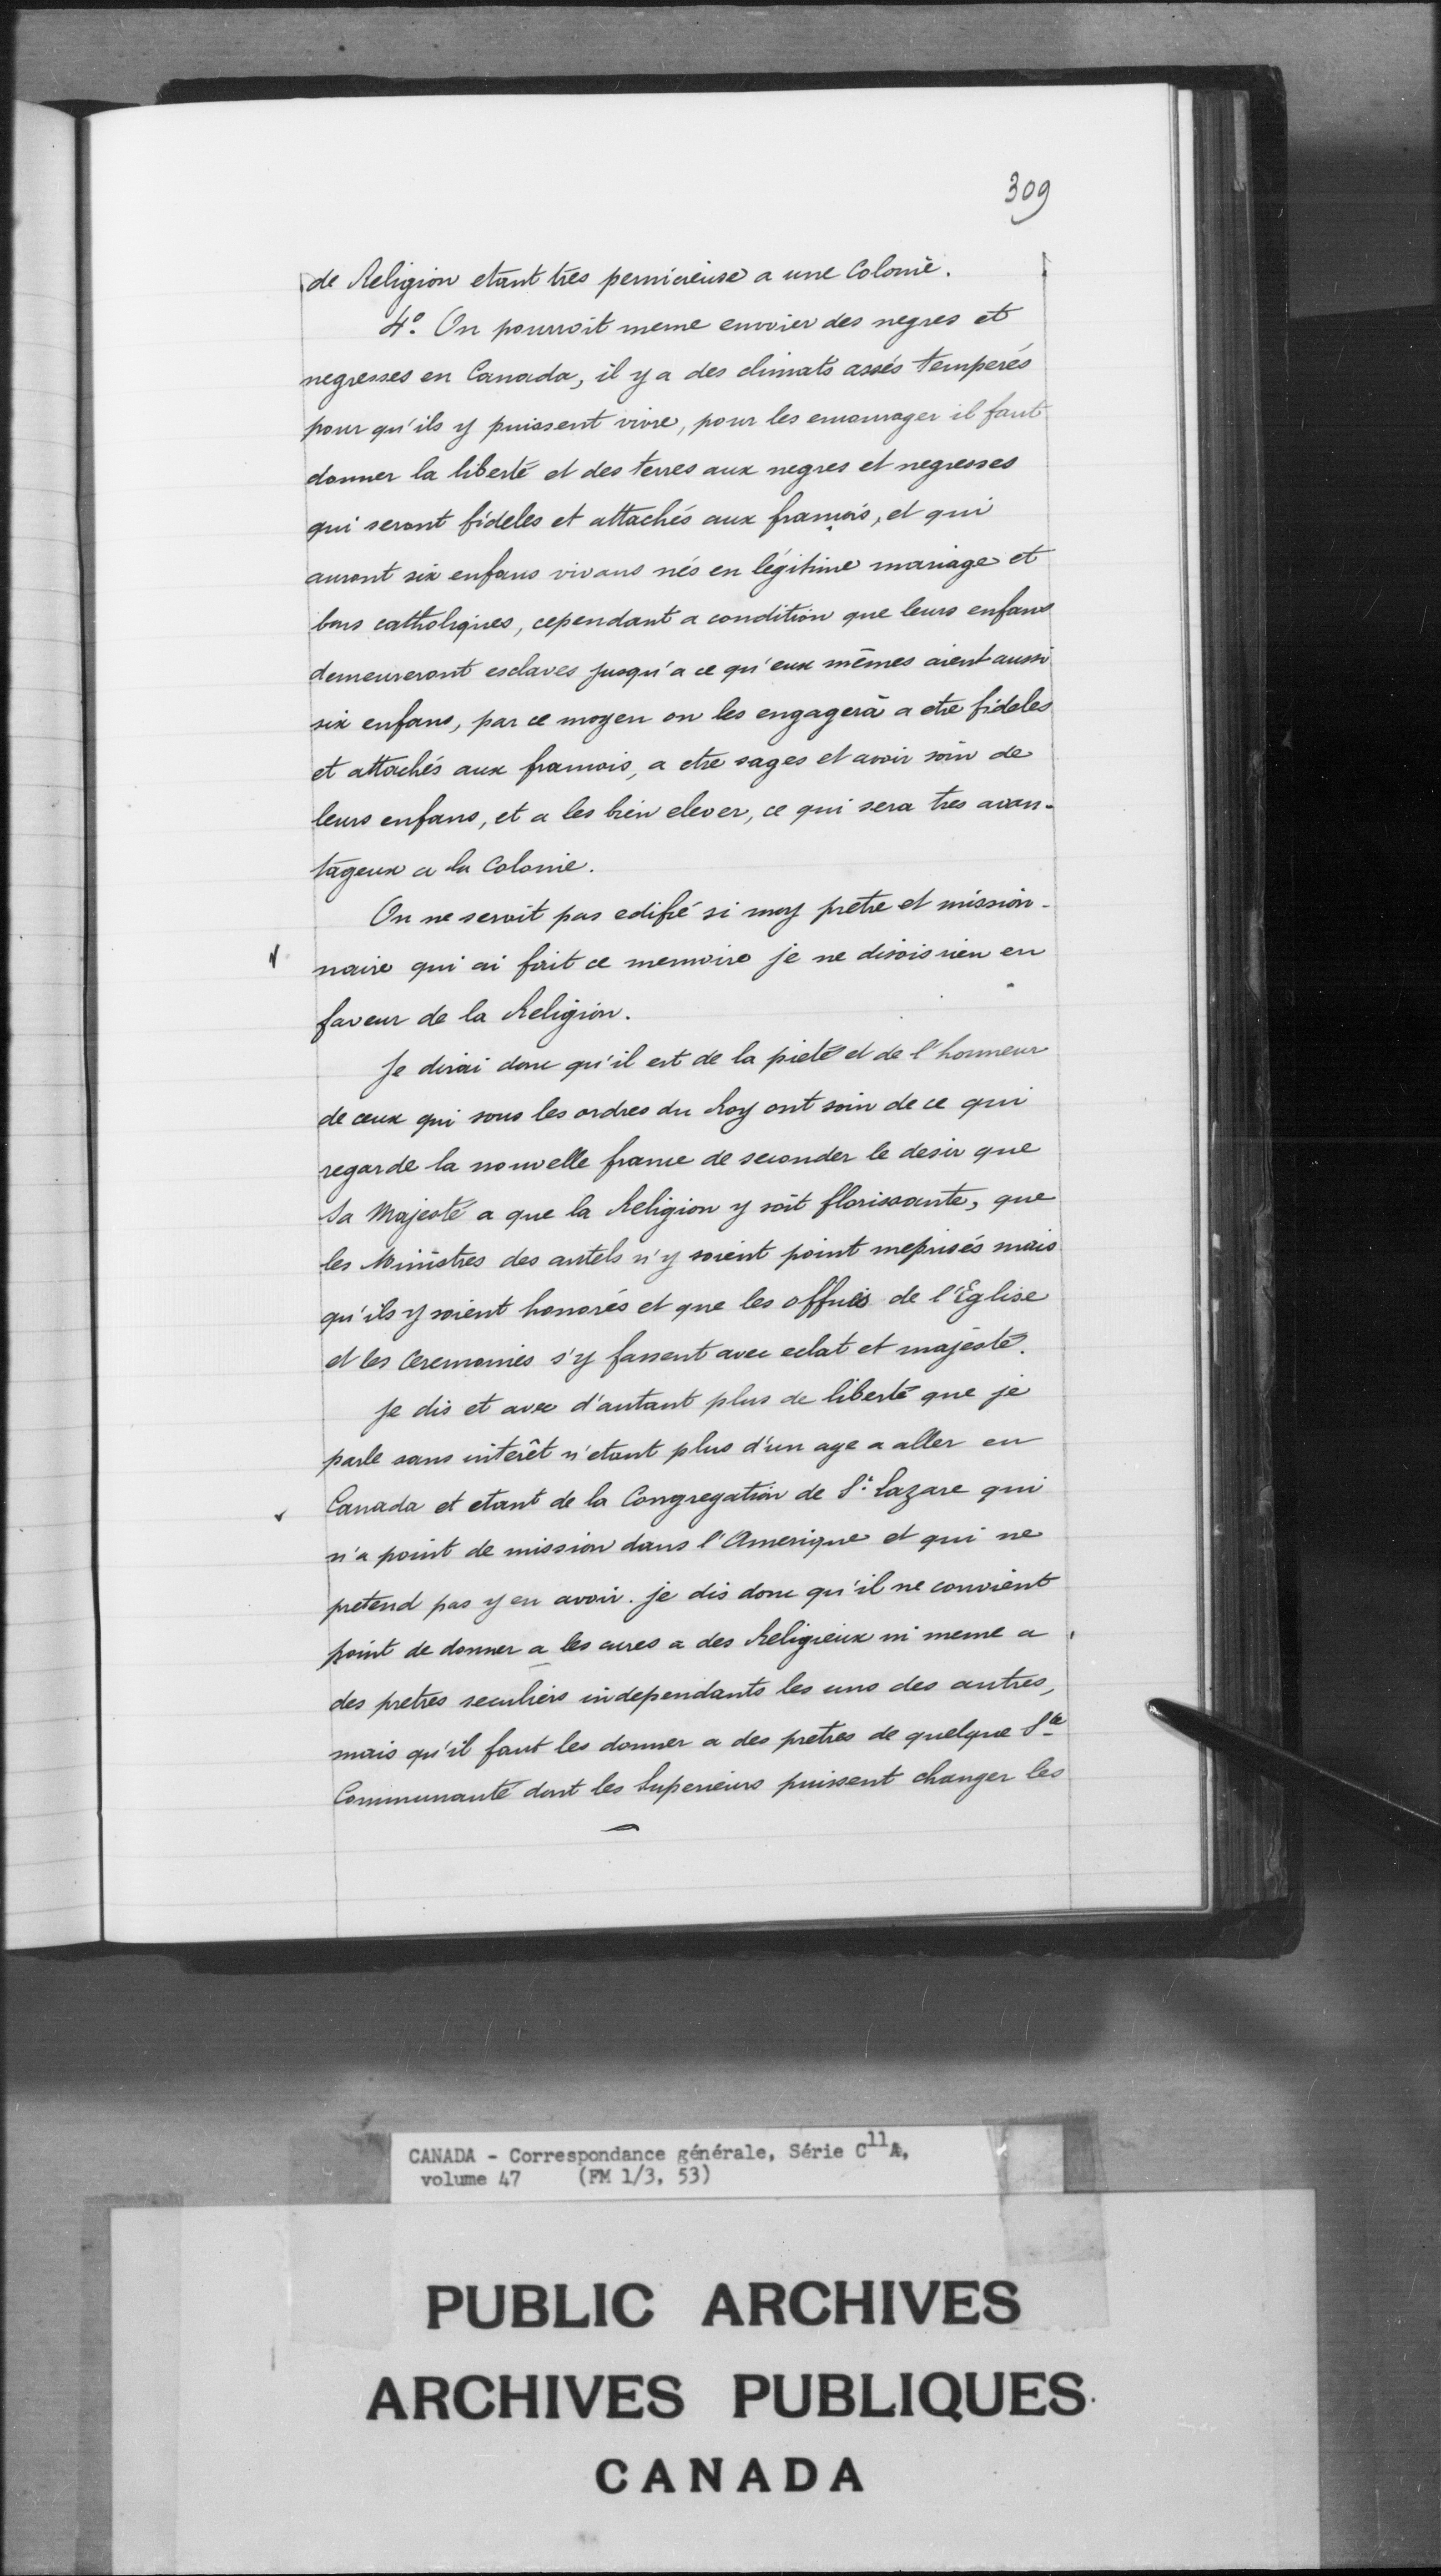 309
de Religion etant tres pernicieuse a une Colonie.
4º. On pourroit meme envoier des negres et
negresses en Canada, il y a des climats assés temperés
pour qu'ils y puissent vivre, pour les encourager il faut
donner la liberté et des terres aux negres et negresses
qui seront fideles et attachés aux françois, et qui
auront six enfans vivans nés en légitime mariage et
bons catholiques, cependant a condition que leurs enfans
demeureront esclaves jusqu'a ce qu'eux mêmes aient aussi
six enfans, par ce moyen on les engagera a etre fideles
et attachés aux francois, a etre sages et avoir soin de
leurs enfans, et a les bien elever, ce qui sera tres avan-
tageux a la Colonie.
On ne seroit pas edifié si moy pretre et mission-
naire qui ai fait ce memoire je ne disois rien en
faveur de la Religion.
Je dirai donc qu'il est de la pieté et de l'honneur
de ceux qui sous les ordres du Roy ont soin de ce qui
regarde la nouvelle france de seconder le desir que
Sa Majesté a que la Religion y soit florissante, que
les Ministres des autels n'y soient point meprisés mais
qu'ils y soient honorés et que les offices de l'Eglise
et les Ceremonies s'y fassent avec eclat et majesté.
Je dis et avec d'autant plus de liberté que je
parle sans interêt n'etant plus d'un age a aller en
Canada et etant de la Congregation de St. Lazare qui
n'a point de mission dans l'Amerique et qui ne
pretend pas y en avoir. je dis donc qu'il ne convient
point de donner a les cures a des Religieux ni meme a
des pretres seculiers independants les uns des autres,
mais qu'il faut les donner a des pretres de quelque Ste
Communauté dont les Superieurs puissent changer les
CANADA - Correspondance générale, Série C11A,
volume 47 (FM 1/3, 53)
PUBLIC ARCHIVES
ARCHIVES PUBLIQUES
CANADA